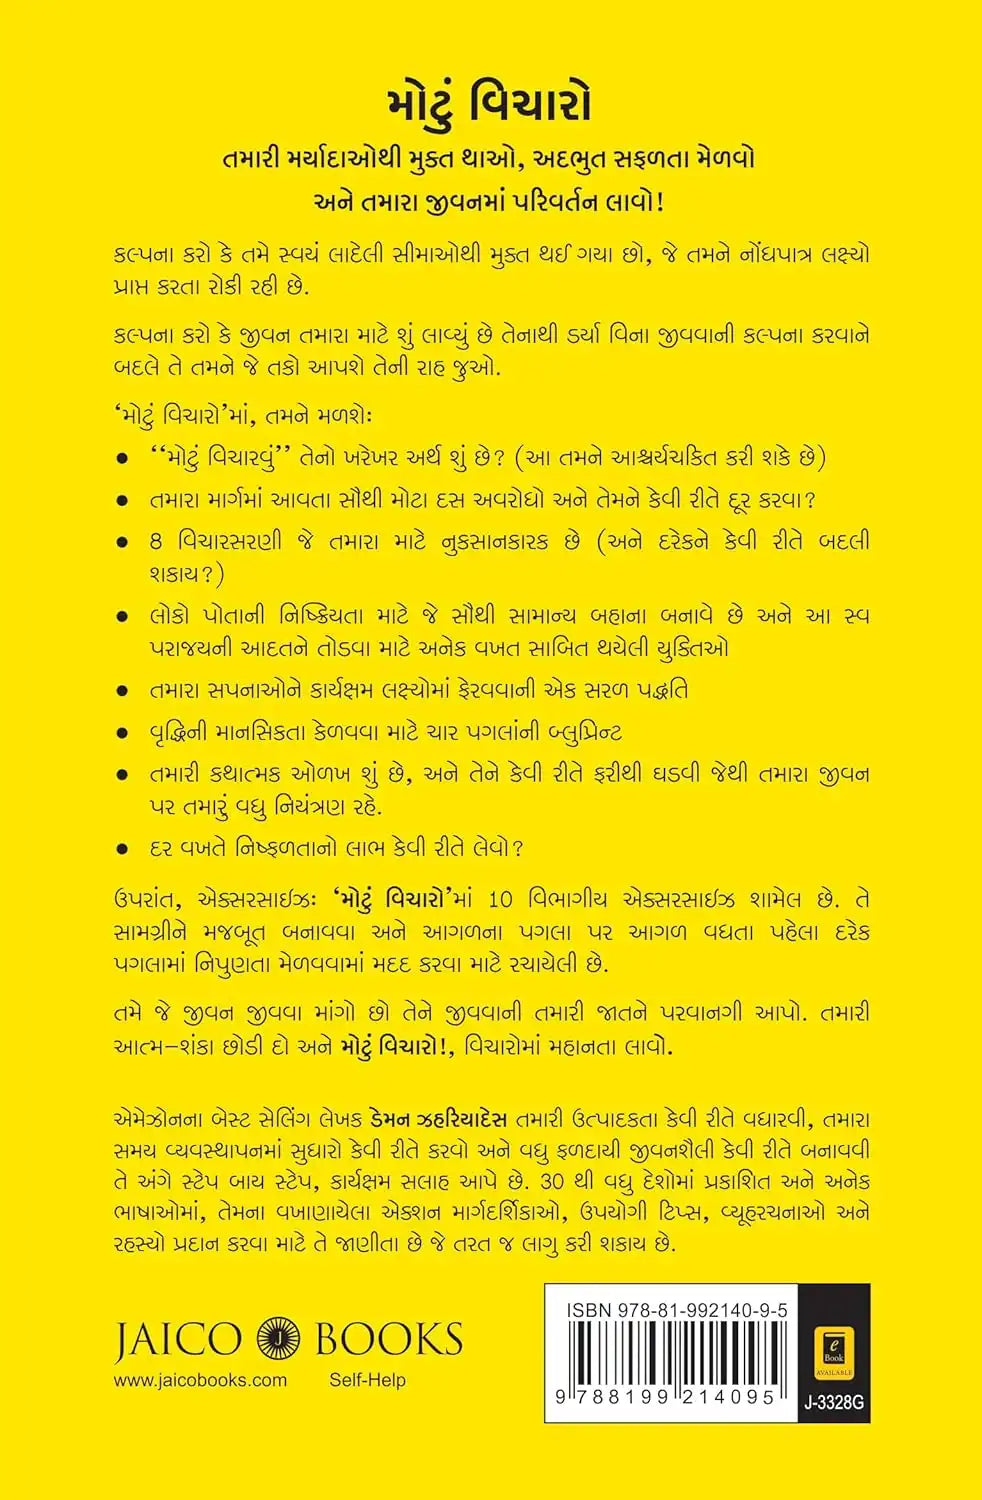 મોટું વિચારો
તમારી મર્યાદાઓથી મુક્ત થાઓ, અદભુત સફળતા મેળવો
અને તમારા જીવનમાં પરિવર્તન લાવો!
કલ્પના કરો કે તમે સ્વયં લાદેલી સીમાઓથી મુક્ત થઈ ગયા છો, જે તમને નોંધપાત્ર લક્ષ્યો
પ્રાપ્ત કરતા રોકી રહી છે.
કલ્પના કરો કે જીવન તમારા માટે શું લાવ્યું છે તેનાથી ડર્યા વિના જીવવાની કલ્પના કરવાને
બદલે તે તમને જે તકો આપશે તેની રાહ જુઓ.
‘મોટું વિચારો’માં, તમને મળશેઃ
• “મોટું વિચારવું” તેનો ખરેખર અર્થ શું છે? (આ તમને આશ્ચર્યચકિત કરી શકે છે)
• તમારા માર્ગમાં આવતા સૌથી મોટા દસ અવરોધો અને તેમને કેવી રીતે દૂર કરવા?
• 8 વિચારસરણી જે તમારા માટે નુકસાનકારક છે (અને દરેકને કેવી રીતે બદલી
શકાય?)
• લોકો પોતાની નિષ્ક્રિયતા માટે જે સૌથી સામાન્ય બહાના બનાવે છે અને આ સ્વ
પરાજયની આદતને તોડવા માટે અનેક વખત સાબિત થયેલી યુક્તિઓ
• તમારા સપનાઓને કાર્યક્ષમ લક્ષ્યોમાં ફેરવવાની એક સરળ પદ્ધતિ
• વૃદ્ધિની માનસિકતા કેળવવા માટે ચાર પગલાંની બ્લુપ્રિન્ટ
• તમારી કથાત્મક ઓળખ શું છે, અને તેને કેવી રીતે ફરીથી ઘડવી જેથી તમારા જીવન
પર તમારું વધુ નિયંત્રણ રહે.
• દર વખતે નિષ્ફળતાનો લાભ કેવી રીતે લેવો?
ઉપરાંત, એક્સરસાઈઝઃ ‘મોટું વિચારો’માં 10 વિભાગીય એક્સરસાઈઝ શામેલ છે. તે
સામગ્રીને મજબૂત બનાવવા અને આગળના પગલા પર આગળ વધતા પહેલા દરેક
પગલામાં નિપુણતા મેળવવામાં મદદ કરવા માટે રચાયેલી છે.
તમે જે જીવન જીવવા માંગો છો તેને જીવવાની તમારી જાતને પરવાનગી આપો. તમારી
આત્મ-શંકા છોડી દો અને મોટું વિચારો!, વિચારોમાં મહાનતા લાવો.
એમેઝોનના બેસ્ટ સેલિંગ લેખક ડેમન ઝહરિયાદેસ તમારી ઉત્પાદકતા કેવી રીતે વધારવી, તમારા
સમય વ્યવસ્થાપનમાં સુધારો કેવી રીતે કરવો અને વધુ ફળદાયી જીવનશૈલી કેવી રીતે બનાવવી
તે અંગે સ્ટેપ બાય સ્ટેપ, કાર્યક્ષમ સલાહ આપે છે. 30 થી વધુ દેશોમાં પ્રકાશિત અને અનેક
ભાષાઓમાં, તેમના વખાણાયેલા એક્શન માર્ગદર્શિકાઓ, ઉપયોગી ટિપ્સ, વ્યૂહરચનાઓ અને
રહસ્યો પ્રદાન કરવા માટે તે જાણીતા છે જે તરત જ લાગુ કરી શકાય છે.
JAICO J BOOKS
www.jaicobooks.com Self-Help
ISBN 978-81-992140-9-5
9 788199 214095
e
Book
AVAILABLE
J-3328G